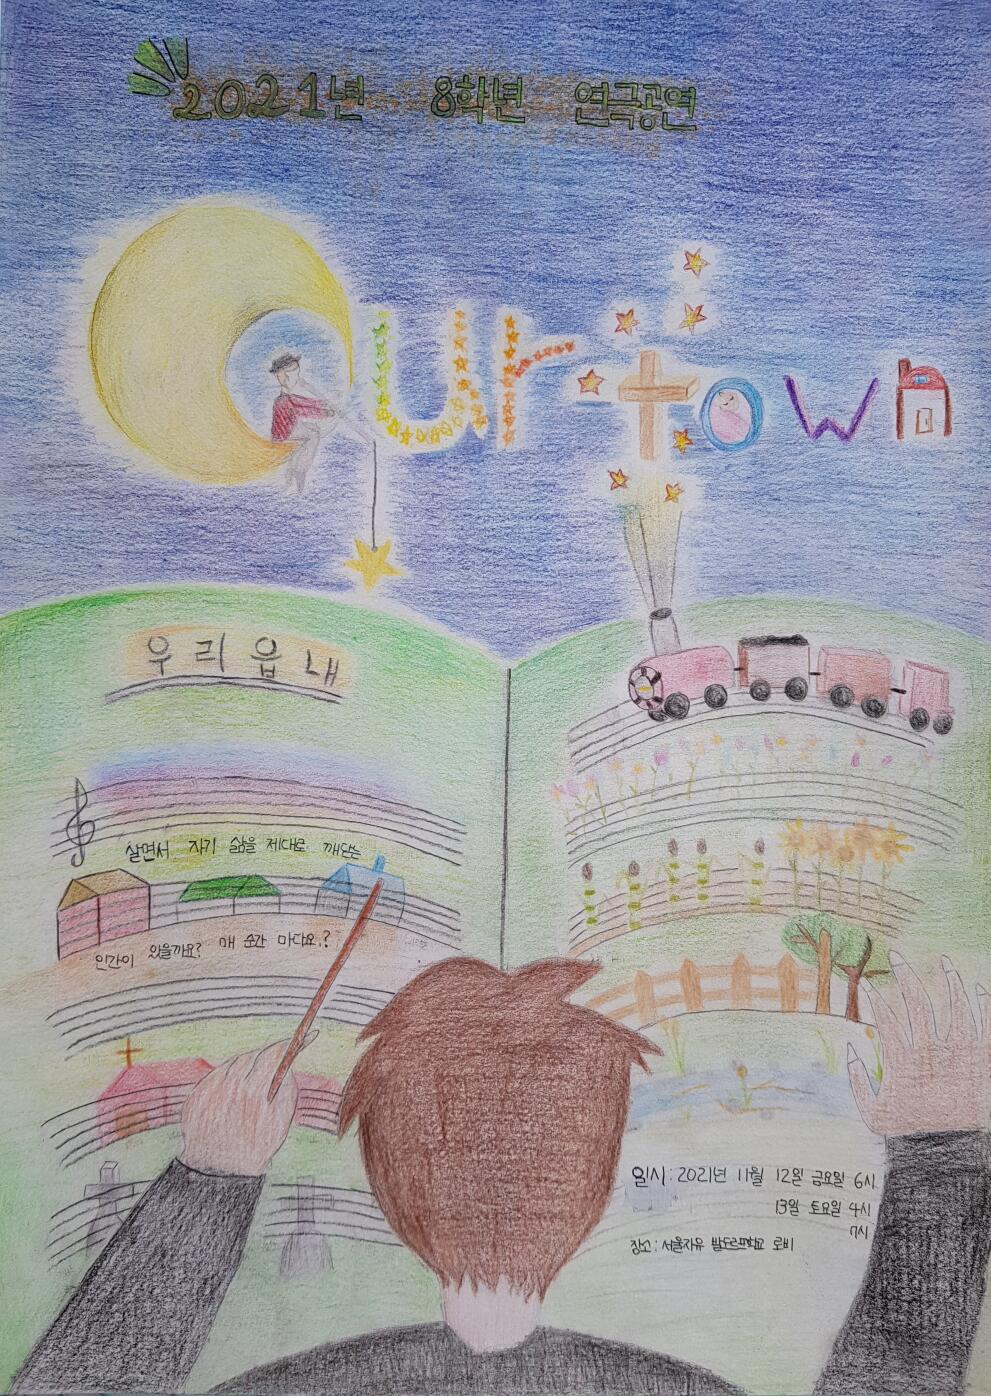 2021년 8학년 연극공연
Our town
우리읍내
살면서 자기 삶을 제대로 깨닫는
인간이 있을까요? 매 순간 마다요.?
일시: 2021년 11월 12일 금요일 6시
13일 토요일 4시
7시
장소: 서울자유 발도르프학교 로비